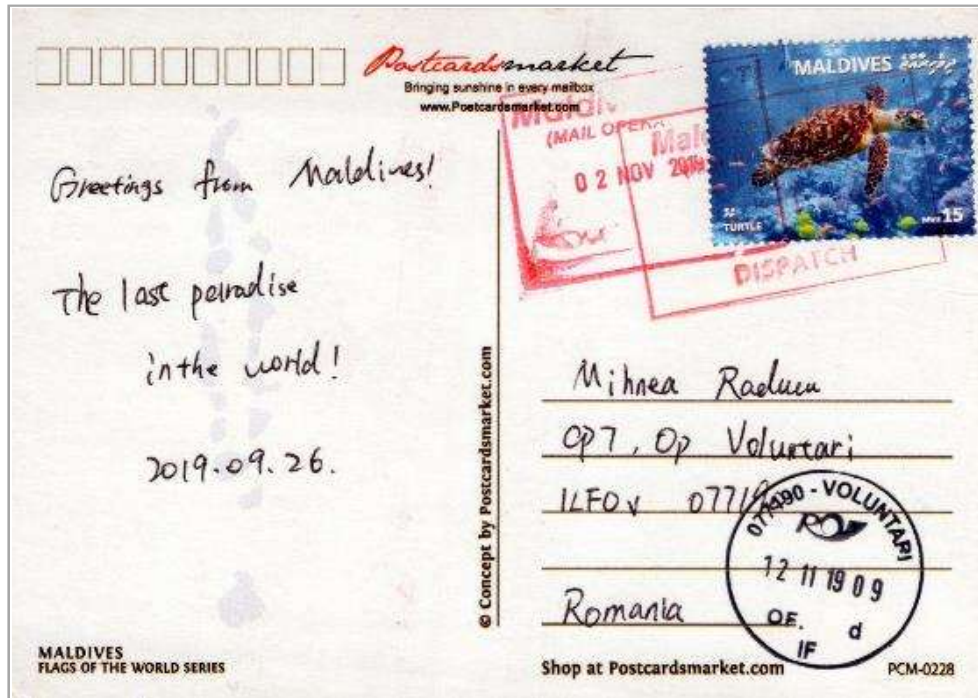 Postcardsmarket
Bringing sunshine in every mailbox
www.Postcardsmarket.com
MALDIVES
TURTLE
MVR 15
(MAIL OPERA
02 NOV 2019
DISPATCH
Greetings from Maldives!
The last paradise
in the world!
2019.09.26.
© Concept by Postcardsmarket.com
Mihnea Raducu
OP7, Op Voluntari
ILFOV 077190
Romania
077190 - VOLUNTARI
12 11 19 09
OF. d
IF
MALDIVES
FLAGS OF THE WORLD SERIES
Shop at Postcardsmarket.com
PCM-0228